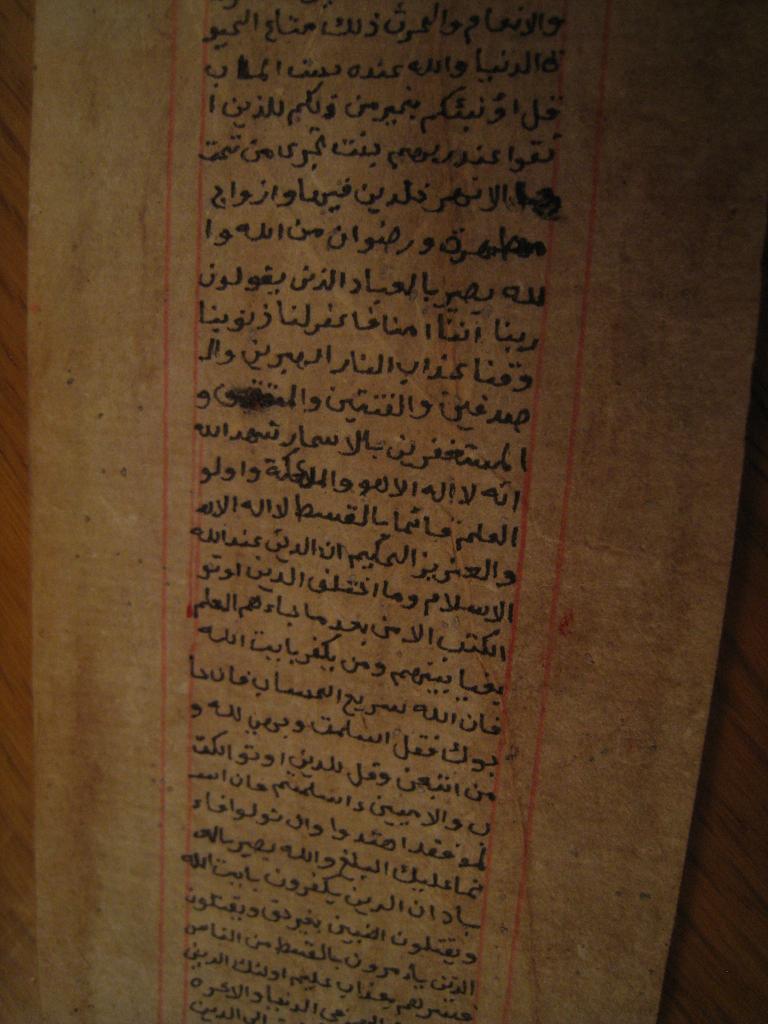 والانعام والحرث ذلك متاع الحيو
ة الدنيا والله عنده حسن الماب
قل اؤنبئكم بخير من ذلكم للذين ا
تقوا عند ربهم جنت تجرى من تحت
ها الانهر خلدين فيها وازواج
مطهرة ورضوان من الله وا
لله بصير بالعباد الذين يقولون
ربنا اننا امنا فاغفر لنا ذنوبنا
وقنا عذاب النار الصبرين وال
صدقين والقنتين والمنفقين و
المستغفرين بالاسحار شهد الله
انه لا اله الا هو والملئكة واولو
العلم قائما بالقسط لا اله الا هو
العزيز الحكيم ان الدين عند الله
الاسلام وما اختلف الذين اوتو
الكتب الا من بعد ما جاءهم العلم
بغيا بينهم ومن يكفر بايت الله
فان الله سريع الحساب فان حا
جوك فقل اسلمت وجهي لله و
من اتبعن وقل للذين اوتوا الكت
ب والاميين ءاسلمتم فان اس
لموا فقد اهتدوا وان تولوا فا
نما عليك البلغ والله بصير بالع
باد ان الذين يكفرون بايت الله
ويقتلون النبين بغير حق ويقتلون
الذين يامرون بالقسط من الناس
فبشرهم بعذاب عليم اولئك الذين
في الدنيا والاخرة